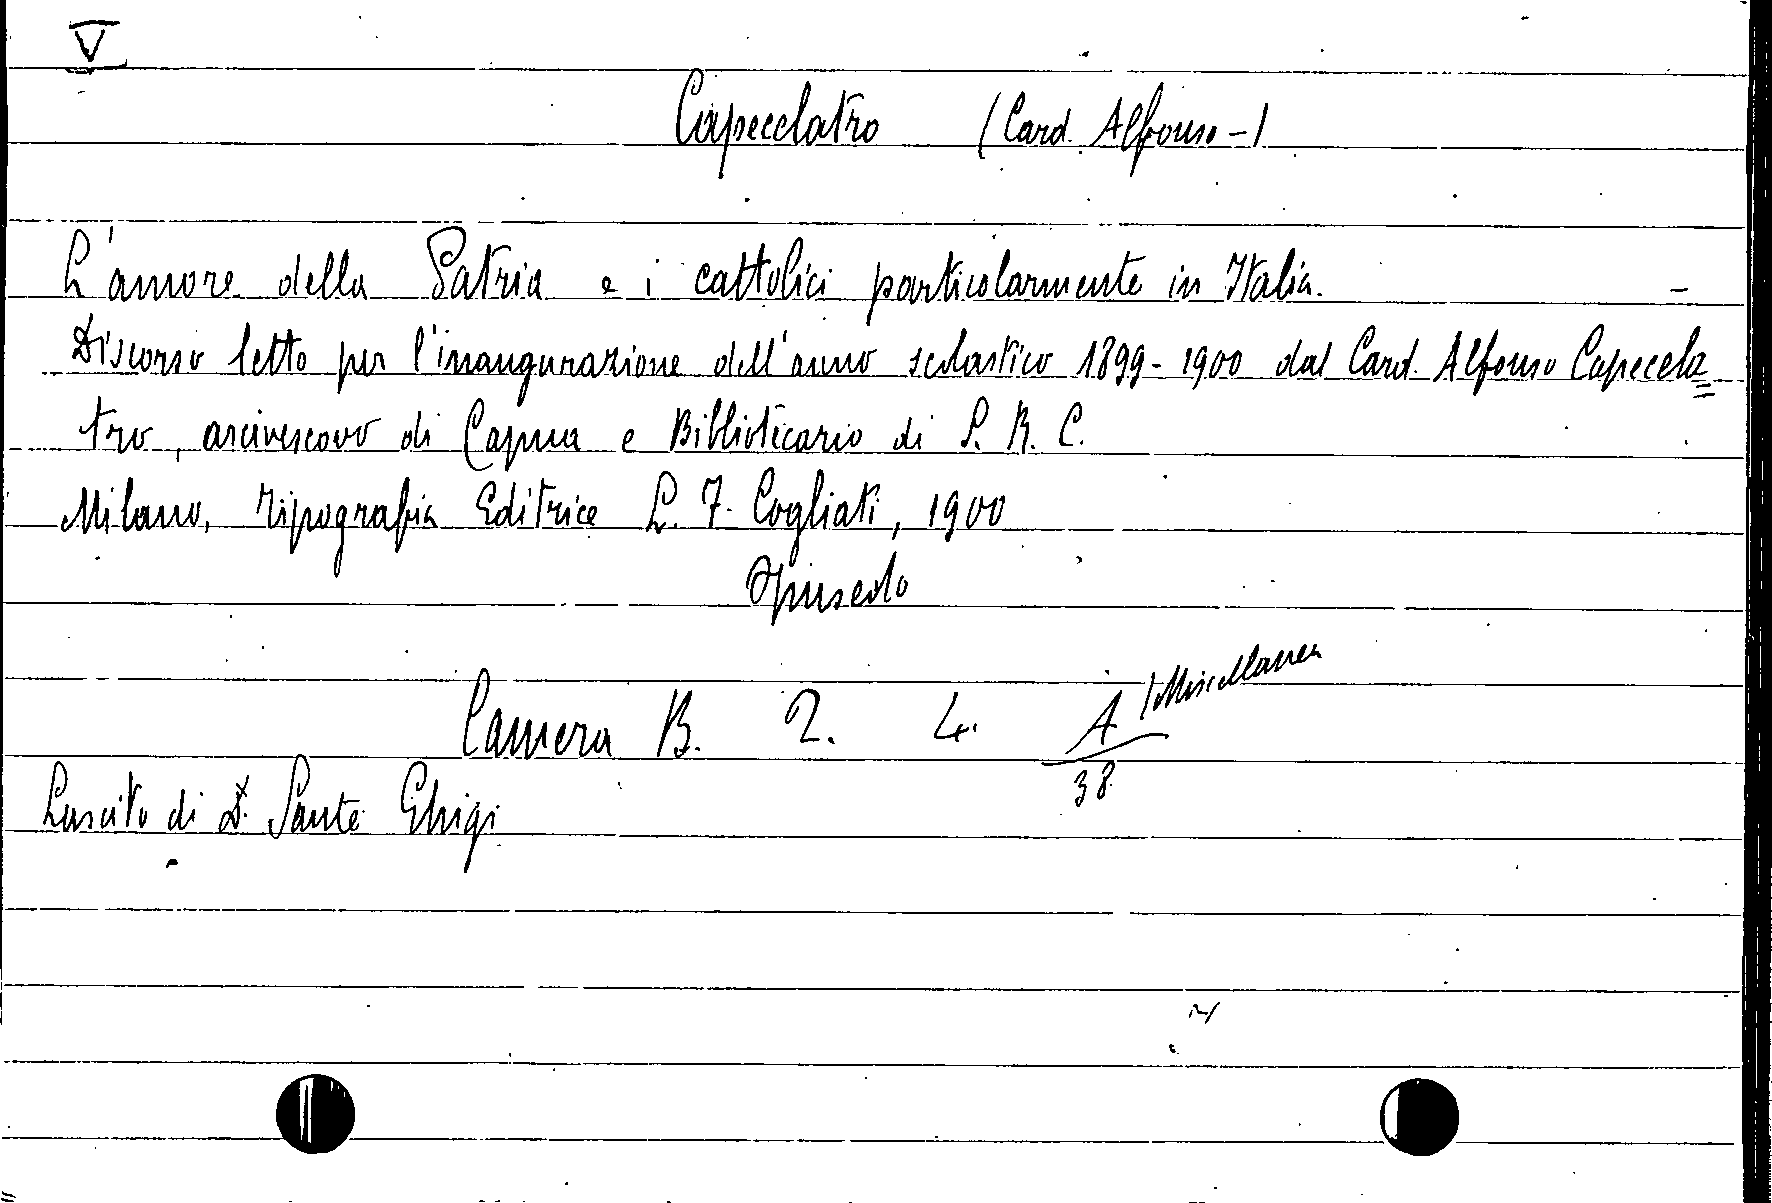 V
Capecelatro (Card. Alfonso -)
L'amore della Patria e i cattolici particolarmente in Italia. -
Discorso letto per l'inaugurazione dell'anno scolastico 1899-1900 dal Card. Alfonso Capecela=
tro, arcivescovo di Capua e Bibliotecario di S. R. C.
Milano, Tipografia Editrice L. F. Cogliati, 1900
Opuscolo
Camera B. 2. 4. A / Miscellanea
38.
Lascito di D. Sante Ghigi